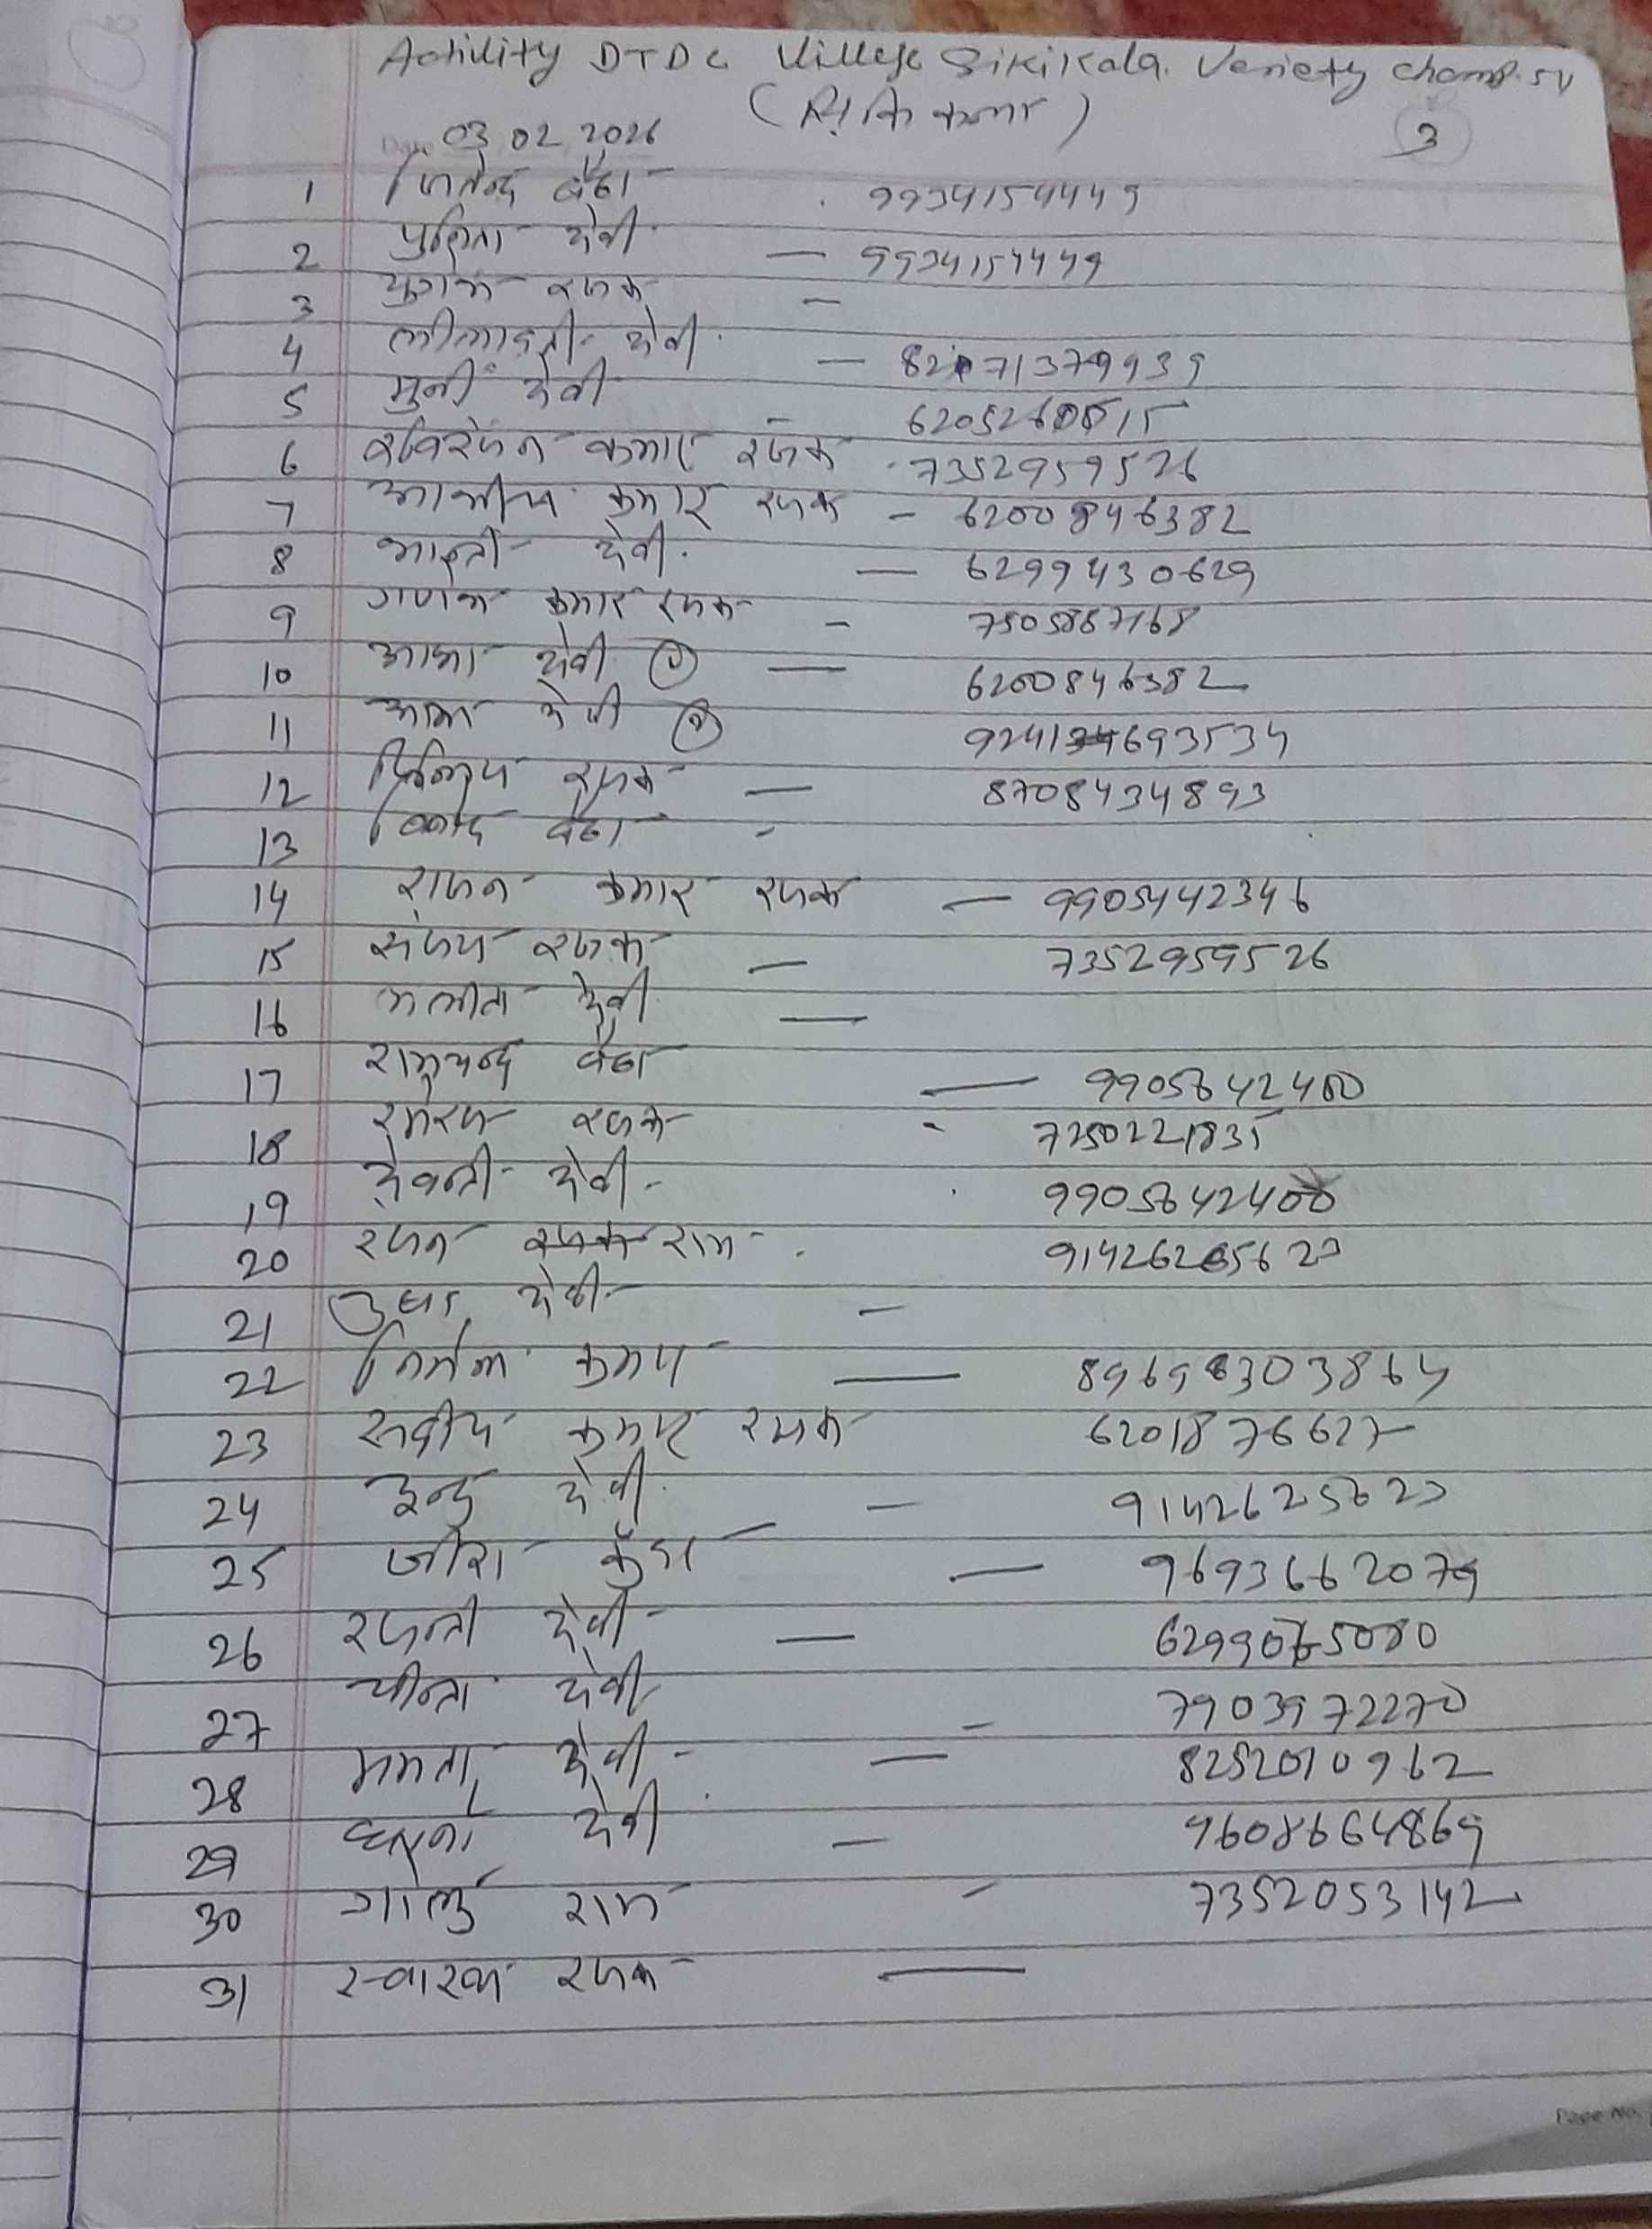 Activity DTDC Village Sikikala. Variety champ. 51
3
Date 03 02 2026
1 जितेन्द्र बैठा 9934154449
2 देवी — 9934154449
3 रजक —
4 लीलावती देवी — 8271379939
5 मुनी देवी 6205260515
6 रविरंजन कुमार रजक 7352959526
7 आशीष कुमार रजक — 6200846382
8 भारती देवी — 6299430629
9 कुमार रजक — 7505867168
10 आशा देवी (1) — 6200846382
11 आशा देवी (2) 9241693534
12 रजक — 8708434893
13 विनोद बैठा -
14 राजन कुमार रजक — 9905442346
15 संजय रजक — 7352959526
16 ललीता देवी —
17 रामचन्द्र बैठा — 9905642400
18 रजक - 7250221835
19 देवन्ती देवी 9905642400
20 रंजन राम 9142625623
21 देवी —
22 निर्मल कुमार — 8969303864
23 संदीप कुमार रजक 6201876627
24 इन्दु देवी — 9142625623
25 जीरा — 9693662079
26 रजन्ती देवी — 6299065080
27 चीन्ता देवी - 7903972270
28 ममता देवी — 8252010962
29 देवी — 9608664869
30 गोलु राम - 7352053142
31 स्वारथ रजक —
Page No.